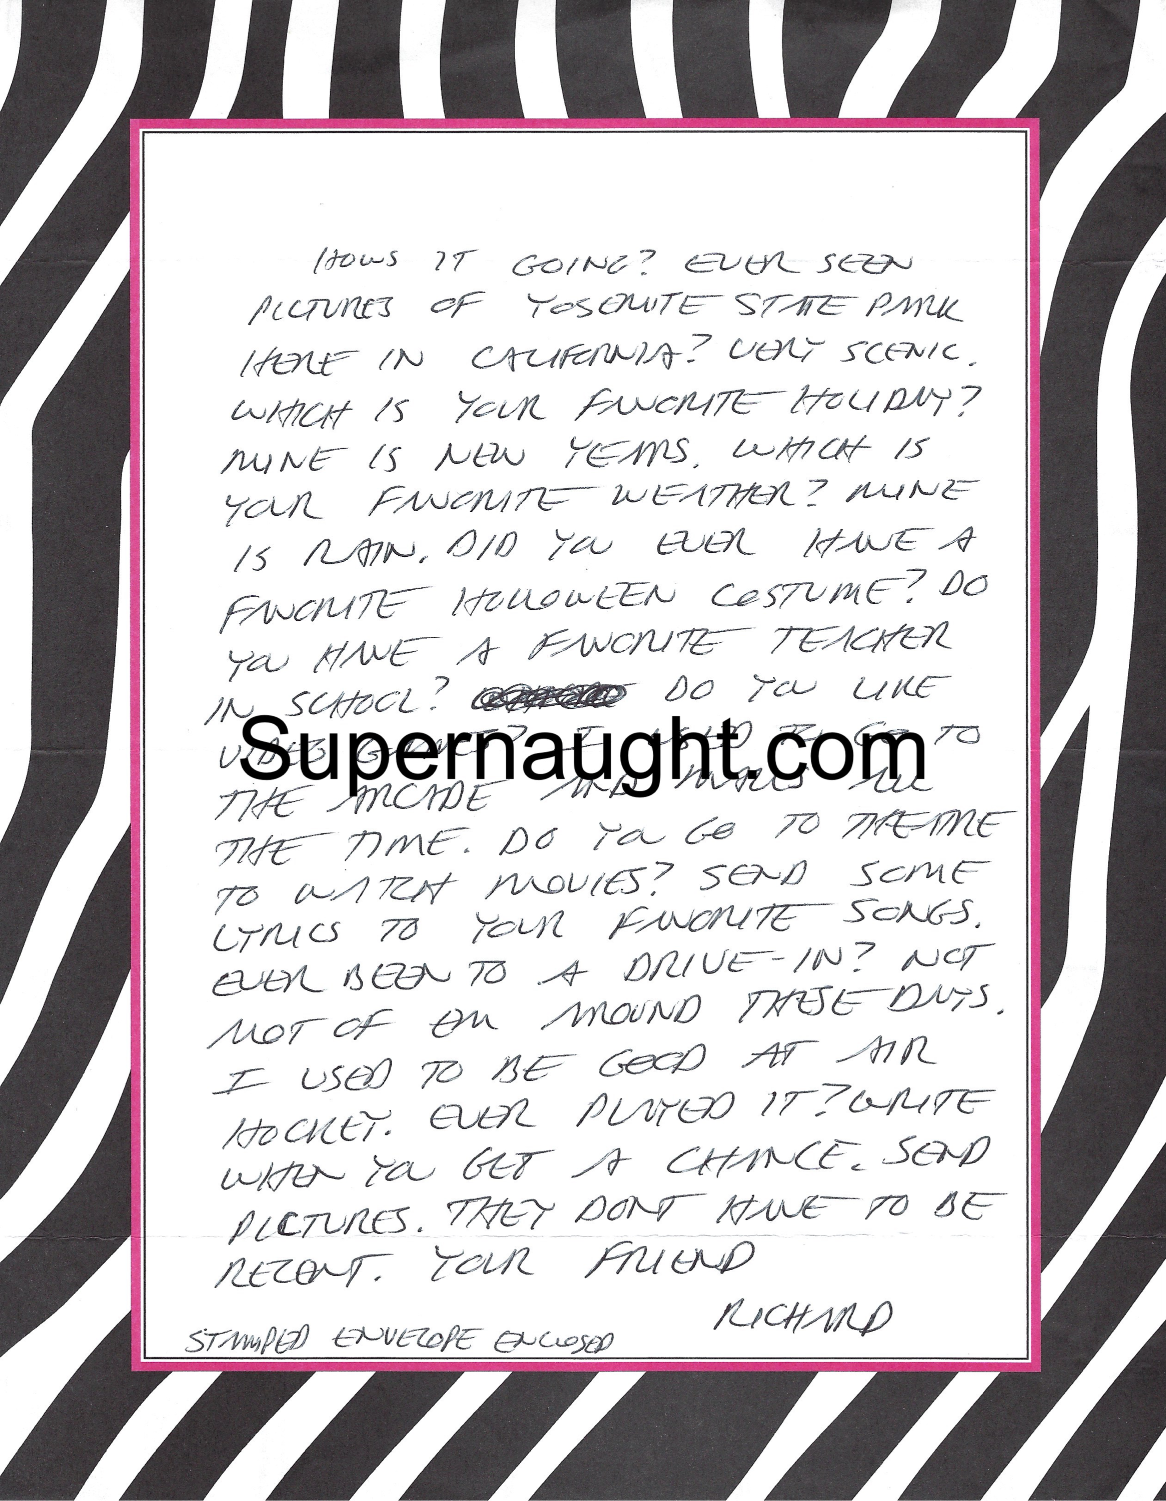 HOWS IT GOING? EVER SEEN
PICTURES OF YOSEMITE STATE PARK
HERE IN CALIFORNIA? VERY SCENIC.
WHICH IS YOUR FAVORITE HOLIDAY?
MINE IS NEW YEARS. WHICH IS
YOUR FAVORITE WEATHER? MINE
IS RAIN. DID YOU EVER HAVE A
FAVORITE HALLOWEEN COSTUME? DO
YOU HAVE A FAVORITE TEACHER
IN SCHOOL? DO YOU LIKE
VIDEO GAMES? I USED TO GO TO
Supernaught.com
THE ARCADE AND MALLS ALL
THE TIME. DO YOU GO TO THEATRE
TO WATCH MOVIES? SEND SOME
LYRICS TO YOUR FAVORITE SONGS.
EVER BEEN TO A DRIVE-IN? NOT
ALOT OF EM AROUND THESE DAYS.
I USED TO BE GOOD AT AIR
HOCKEY. EVER PLAYED IT? WRITE
WHEN YOU GET A CHANCE. SEND
PICTURES. THEY DONT HAVE TO BE
RECENT. YOUR FRIEND
RICHARD
STAMPED ENVELOPE ENCLOSED